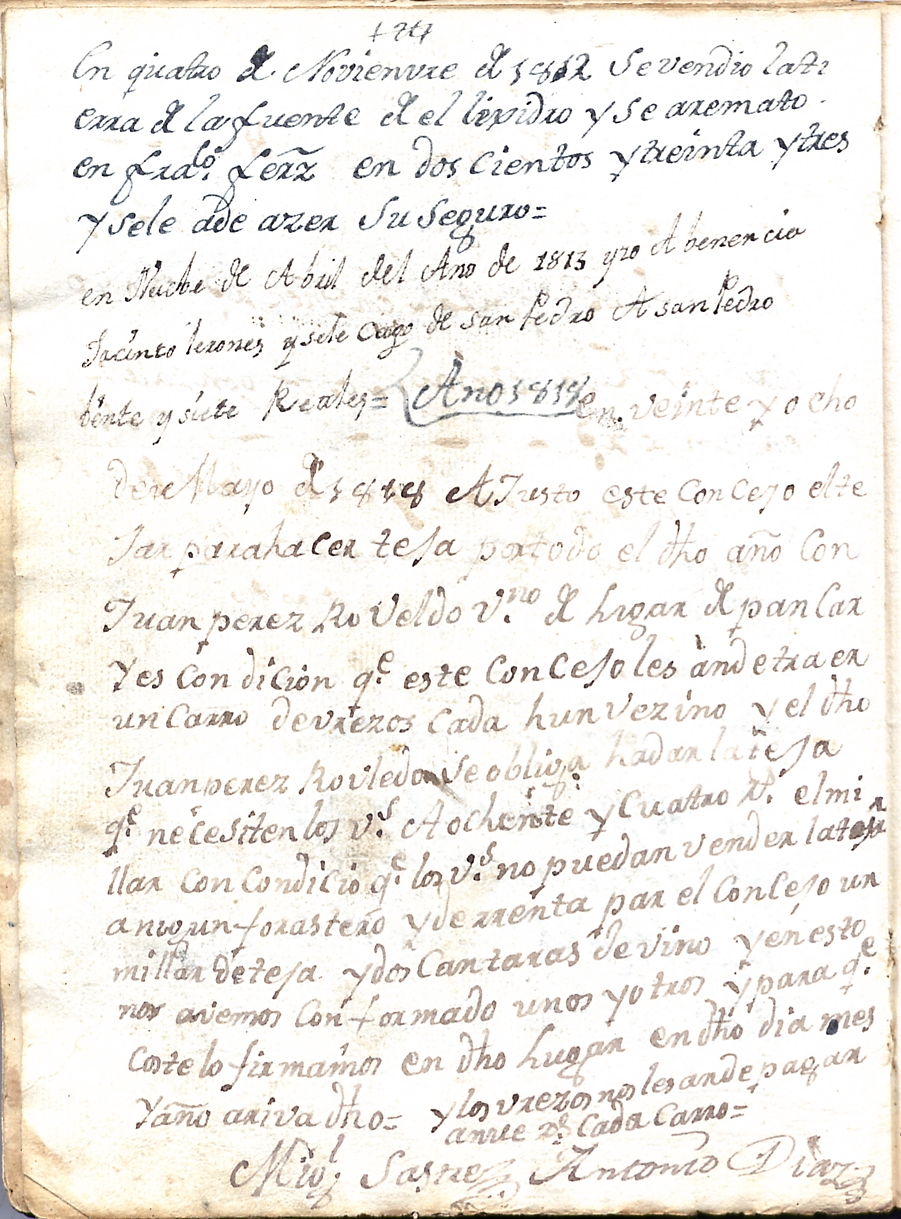 En quatro de Novienvre de 1812 Se vendio la ti
erra de la fuente de el lixidro y Se aremato
en Frdo. Ferrz en dos Cientos y treinta y tres
y sele ade azer Su Seguro=
en Nuebe de Abril del Ano de 1813 yzo Abenencia
Jacinto lerones y sele Cargo de San Pedro A San Pedro
bente y siete Reales= Ano 1818 en veinte y ocho
de Mayo de 1818 AJusto este Concejo el te
Jar para hacer teJa por todo el dho año Con
Juan perez RoVeldo V.no de lugar de pancar
Y es Condicion q.e este ConceJo les ande traer
un Carro de vrezos Cada hun Vezino y el dho
Juan perez Rovledo Se obliga ha dar la teJa
q.e neceSiten los v.s A ochente y Cuatro R.s el mi
llar Con Condicio q.e los V.s no puedan vender la teja
a nigun forastero y de rrenta par el ConceJo un
millar de teJa y dos Cantaras de vino y en esto
nos avemos Conformado unos y otros y para q.e
Coste lo firmamos en dho lugar en dho dia mes
Y año ariva dho= y los vrezos nos les ande pagar
anue r.s Cada Carro=
Migl Sastre Antonio Diaz